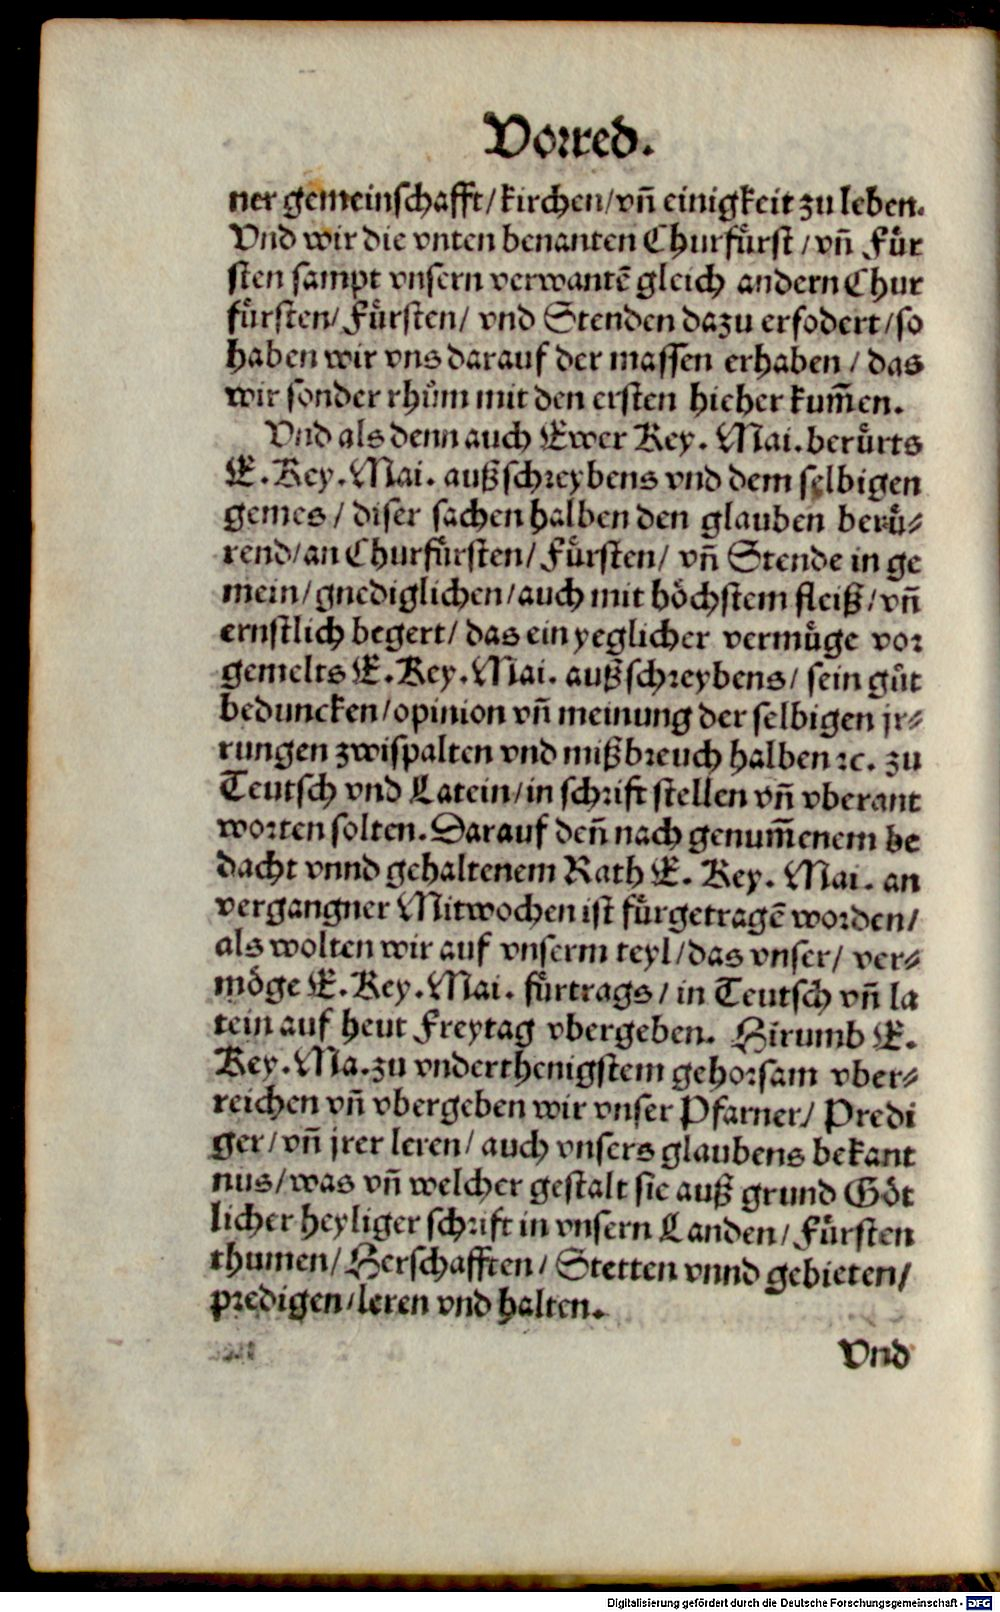 Vorred.
ner gemeinschafft/ kirchen/ vñ einigkeit zu leben.
Vnd wir die vnten benanten Churfuͤrst/ vñ Fuͤr
sten sampt vnsern verwantẽ gleich andern Chur
fuͤrsten/ Fuͤrsten/ vnd Stenden dazu erfodert/ so
haben wir vns darauf der massen erhaben/ das
wir sonder rhuͤm mit den ersten hieher kum̃en.
Vnd als denn auch Ewer Key. Mai. beruͤrts
E. Key. Mai. außschreybens vnd dem selbigen
gemes/ diser sachen halben den glauben beruͤ⸗
rend/ an Churfuͤrsten/ Fuͤrsten/ vñ Stende in ge
mein/ gnediglichen/ auch mit hoͤchstem fleiß/ vñ
ernstlich begert/ das ein yeglicher vermuͤge vor
gemelts E. Key. Mai. außschreybens/ sein guͤt
beduncken/ opinion vñ meinung der selbigen jr⸗
rungen zwispalten vnd mißbreuch halben ꝛc. zu
Teutsch vnd Latein/ in schrift stellen vñ vberant
worten solten. Darauf deñ nach genum̃enem be
dacht vnnd gehaltenem Rath E. Key. Mai. an
vergangner Mitwochen ist fuͤrgetragẽ worden/
als wolten wir auf vnserm teyl/ das vnser/ ver⸗
moͤge E. Key. Mai. fuͤrtrags/ in Teutsch vñ la
tein auf heut Freytag vbergeben. Hirumb E.
Key. Ma. zu vnderthenigstem gehorsam vber⸗
reichen vñ vbergeben wir vnser Pfarner/ Predi
ger/ vñ jrer leren/ auch vnsers glaubens bekant
nus/ was vñ welcher gestalt sie auß grund Goͤt
licher heyliger schrift in vnsern Landen/ Fuͤrsten
thumen/ Herschafften/ Stetten vnnd gebieten/
predigen/ leren vnd halten.
Vnd
Digitalisierung gefördert durch die Deutsche Forschungsgemeinschaft - DFG